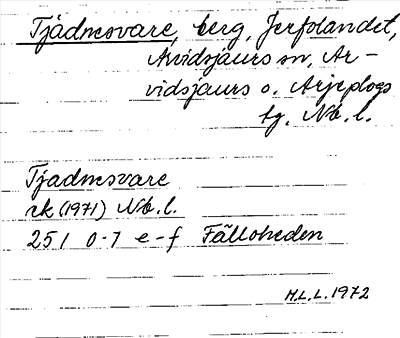 Tjådnesvare, berg, Jerfolandet,
Arvidsjaurs sn, Ar-
vidsjaurs o. Arjeplogs
tg, Nb. l.
Tjadnesvare
rk (1971) Nb. l.
25 I 0-1 e-f Fälloheden
H.L.L. 1972